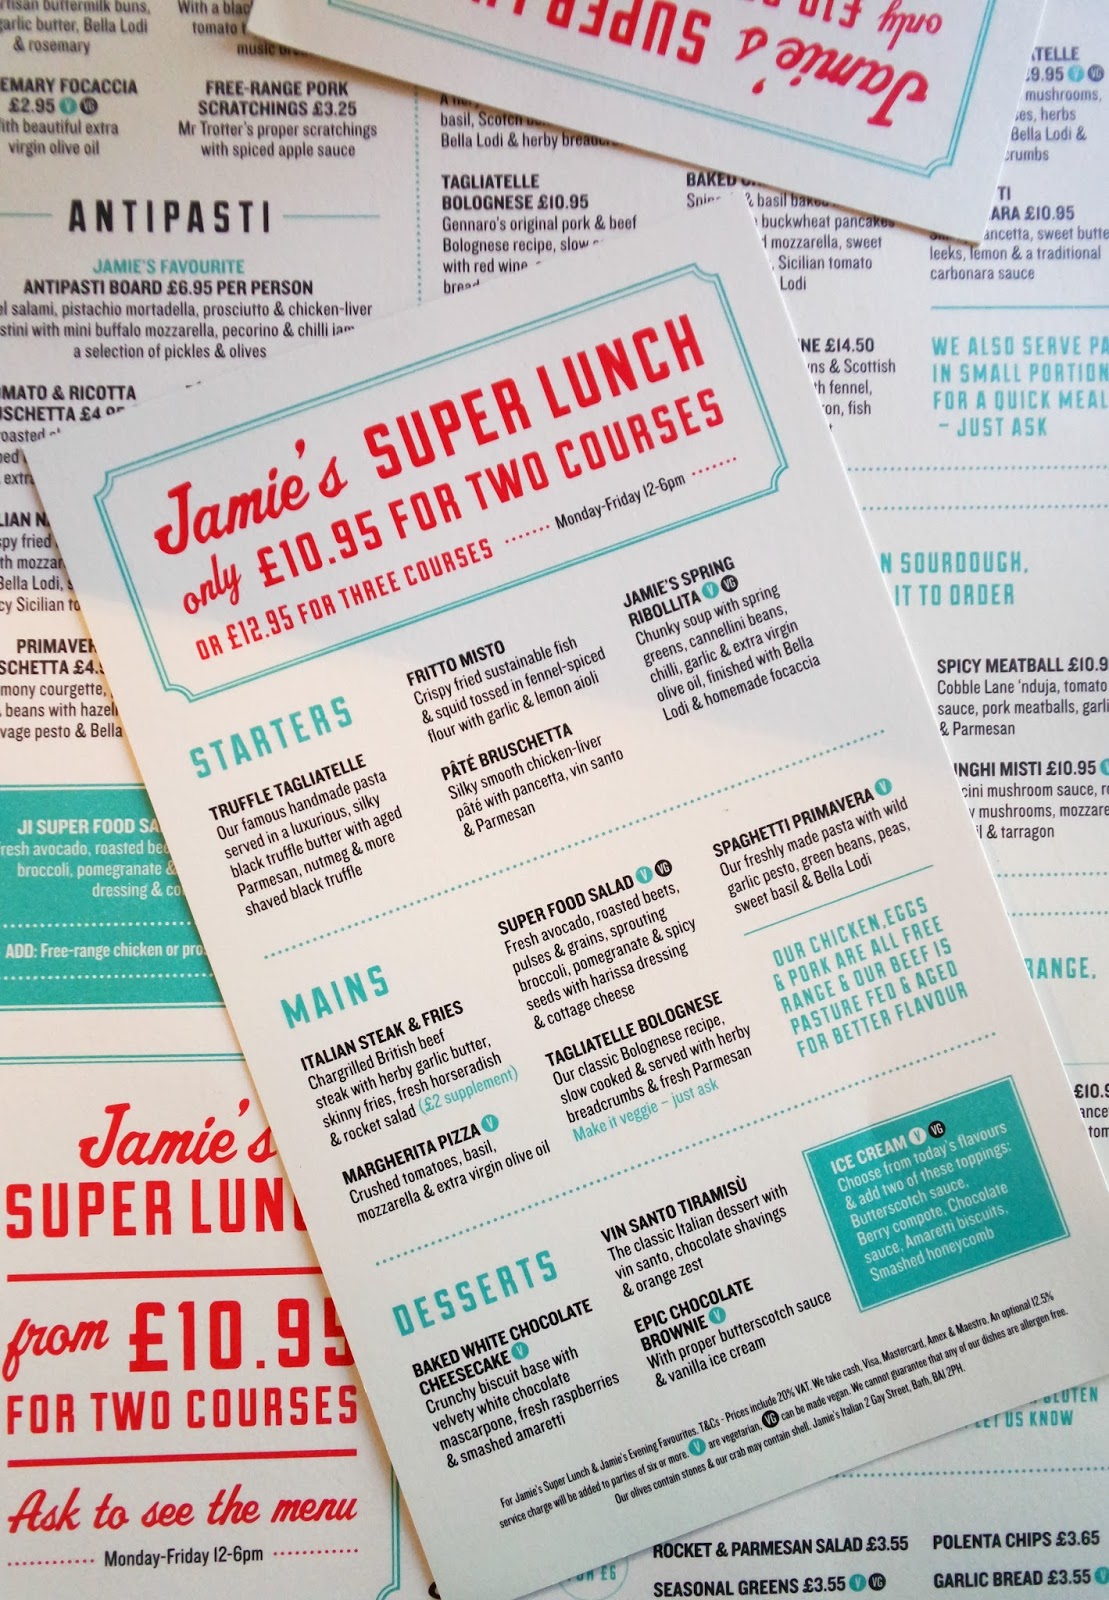 Jamie's SUPER LUNCH
only £10.95 FOR TWO COURSES
OR £12.95 FOR THREE COURSES ........ Monday-Friday 12-6pm ........
STARTERS
TRUFFLE TAGLIATELLE
Our famous handmade pasta
served in a luxurious, silky
black truffle butter with aged
Parmesan, nutmeg & more
shaved black truffle
FRITTO MISTO
Crispy fried sustainable fish
& squid tossed in fennel-spiced
flour with garlic & lemon aioli
PÂTÉ BRUSCHETTA
Silky smooth chicken-liver
pâté with pancetta, vin santo
& Parmesan
JAMIE'S SPRING
RIBOLLITA V VG
Chunky soup with spring
greens, cannellini beans,
chilli, garlic & extra virgin
olive oil, finished with Bella
Lodi & homemade focaccia
MAINS
ITALIAN STEAK & FRIES
Chargrilled British beef
steak with herby garlic butter,
skinny fries, fresh horseradish
& rocket salad (£2 supplement)
MARGHERITA PIZZA V
Crushed tomatoes, basil,
mozzarella & extra virgin olive oil
SUPER FOOD SALAD V VG
Fresh avocado, roasted beets,
pulses & grains, sprouting
broccoli, pomegranate & spicy
seeds with harissa dressing
& cottage cheese
TAGLIATELLE BOLOGNESE
Our classic Bolognese recipe,
slow cooked & served with herby
breadcrumbs & fresh Parmesan
Make it veggie – just ask
SPAGHETTI PRIMAVERA V
Our freshly made pasta with wild
garlic pesto, green beans, peas,
sweet basil & Bella Lodi
OUR CHICKEN, EGGS
& PORK ARE ALL FREE
RANGE & OUR BEEF IS
PASTURE FED & AGED
FOR BETTER FLAVOUR
DESSERTS
BAKED WHITE CHOCOLATE
CHEESECAKE V
Crunchy biscuit base with
velvety white chocolate
mascarpone, fresh raspberries
& smashed amaretti
VIN SANTO TIRAMISÙ
The classic Italian dessert with
vin santo, chocolate shavings
& orange zest
EPIC CHOCOLATE
BROWNIE V
With proper butterscotch sauce
& vanilla ice cream
ICE CREAM V VG
Choose from today's flavours
& add two of these toppings:
Butterscotch sauce,
Berry compote, Chocolate
sauce, Amaretti biscuits,
Smashed honeycomb
For Jamie's Super Lunch & Jamie's Evening Favourites. T&Cs - Prices include 20% VAT. We take cash, Visa, Mastercard, Amex & Maestro. An optional 12.5%
service charge will be added to parties of six or more. V are vegetarian, VG can be made vegan. We cannot guarantee that any of our dishes are allergen free.
Our olives contain stones & our crab may contain shell. Jamie's Italian 2 Gay Street, Bath, BA1 2PH.
buttermilk buns,
garlic butter, Bella Lodi
& rosemary
FOCACCIA
£2.95 V VG
with beautiful extra
virgin olive oil
With a
tomato
music
FREE-RANGE PORK
SCRATCHINGS £3.25
Mr Trotter's proper scratchings
with spiced apple sauce
ANTIPASTI
JAMIE'S FAVOURITE
ANTIPASTI BOARD £6.95 PER PERSON
salami, pistachio mortadella, prosciutto & chicken-liver
with mini buffalo mozzarella, pecorino & chilli jam
a selection of pickles & olives
& RICOTTA
roasted
extra
fried
Bella Lodi,
Sicilian
courgette,
beans with
pesto & Bella
JI SUPER FOOD
avocado, roasted
broccoli, pomegranate &
dressing &
ADD: Free-range chicken or
Jamie's
SUPER
from £10.95
FOR TWO COURSES
Ask to see the menu
Monday-Friday 12-6pm
Jamie's SUPER
only £10
basil, Scotch
Bella Lodi & herby
TAGLIATELLE
BOLOGNESE £10.95
Gennaro's original pork & beef
Bolognese recipe, slow
with red wine
BAKED
& basil
buckwheat pancakes
mozzarella, sweet
Sicilian tomato
Lodi
£14.50
& Scottish
fennel,
fish
£9.95 V VG
mushrooms,
herbs
Bella Lodi &
£10.95
sweet
leeks, lemon & a traditional
carbonara sauce
WE ALSO SERVE
IN SMALL
FOR A QUICK MEAL
– JUST ASK
SOURDOUGH,
IT TO ORDER
SPICY MEATBALL
Cobble Lane 'nduja, tomato
sauce, pork meatballs,
& Parmesan
MISTI £10.95
mushroom sauce,
mushrooms,
& tarragon
GLUTEN
LET US KNOW
£6
ROCKET & PARMESAN SALAD £3.55
SEASONAL GREENS £3.55 V VG
POLENTA CHIPS £3.65
GARLIC BREAD £3.55 V